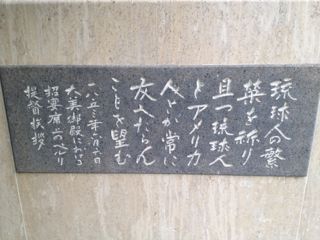 琉球人の繁
榮を祈り
且つ琉球人
とアメリカ
人とが常に
友人たらん
ことを望む
一八五三年六月六日
大美御殿における
招宴席上のペルリ
提督挨拶